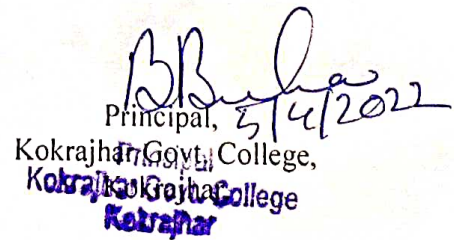 5/4/2022
Principal,
Kokrajhar Govt. College,
Kokrajhar
Principal
Kokrajhar Govt. College
Kokrajhar